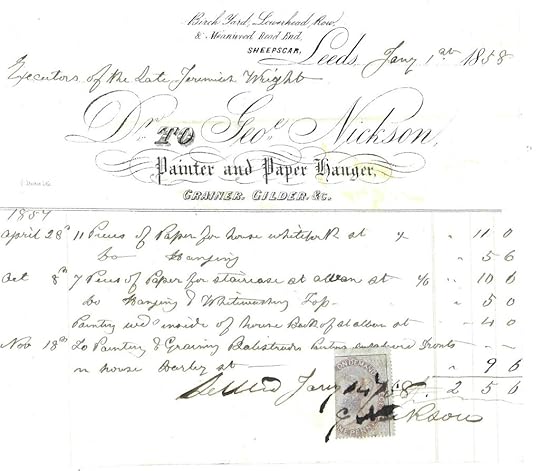 Birch Yard, Lowerhead Row,
& Meanwood Road End,
SHEEPSCAR,
Leeds, Jany 1st 1858
Executors of the late Jeremiah Wright
Dr TO Geo. Nickson,
Painter and Paper Hanger,
GRAINER, GILDER, &c.
1857
April 28th 11 Pieces of Paper for house at 1/- " 11 0
do Hanging " 5 6
Oct 8th 7 Pieces of Paper for staircase at at 1/6 " 10 6
do Hanging & Whitewashing Top " 5 0
inside of house Back of st alban st " 4 0
Nov 18th To Painting & Graining Fronts
in house st " 9 6
Settled Jany 14/58 £ 2 5 6
G Nickson